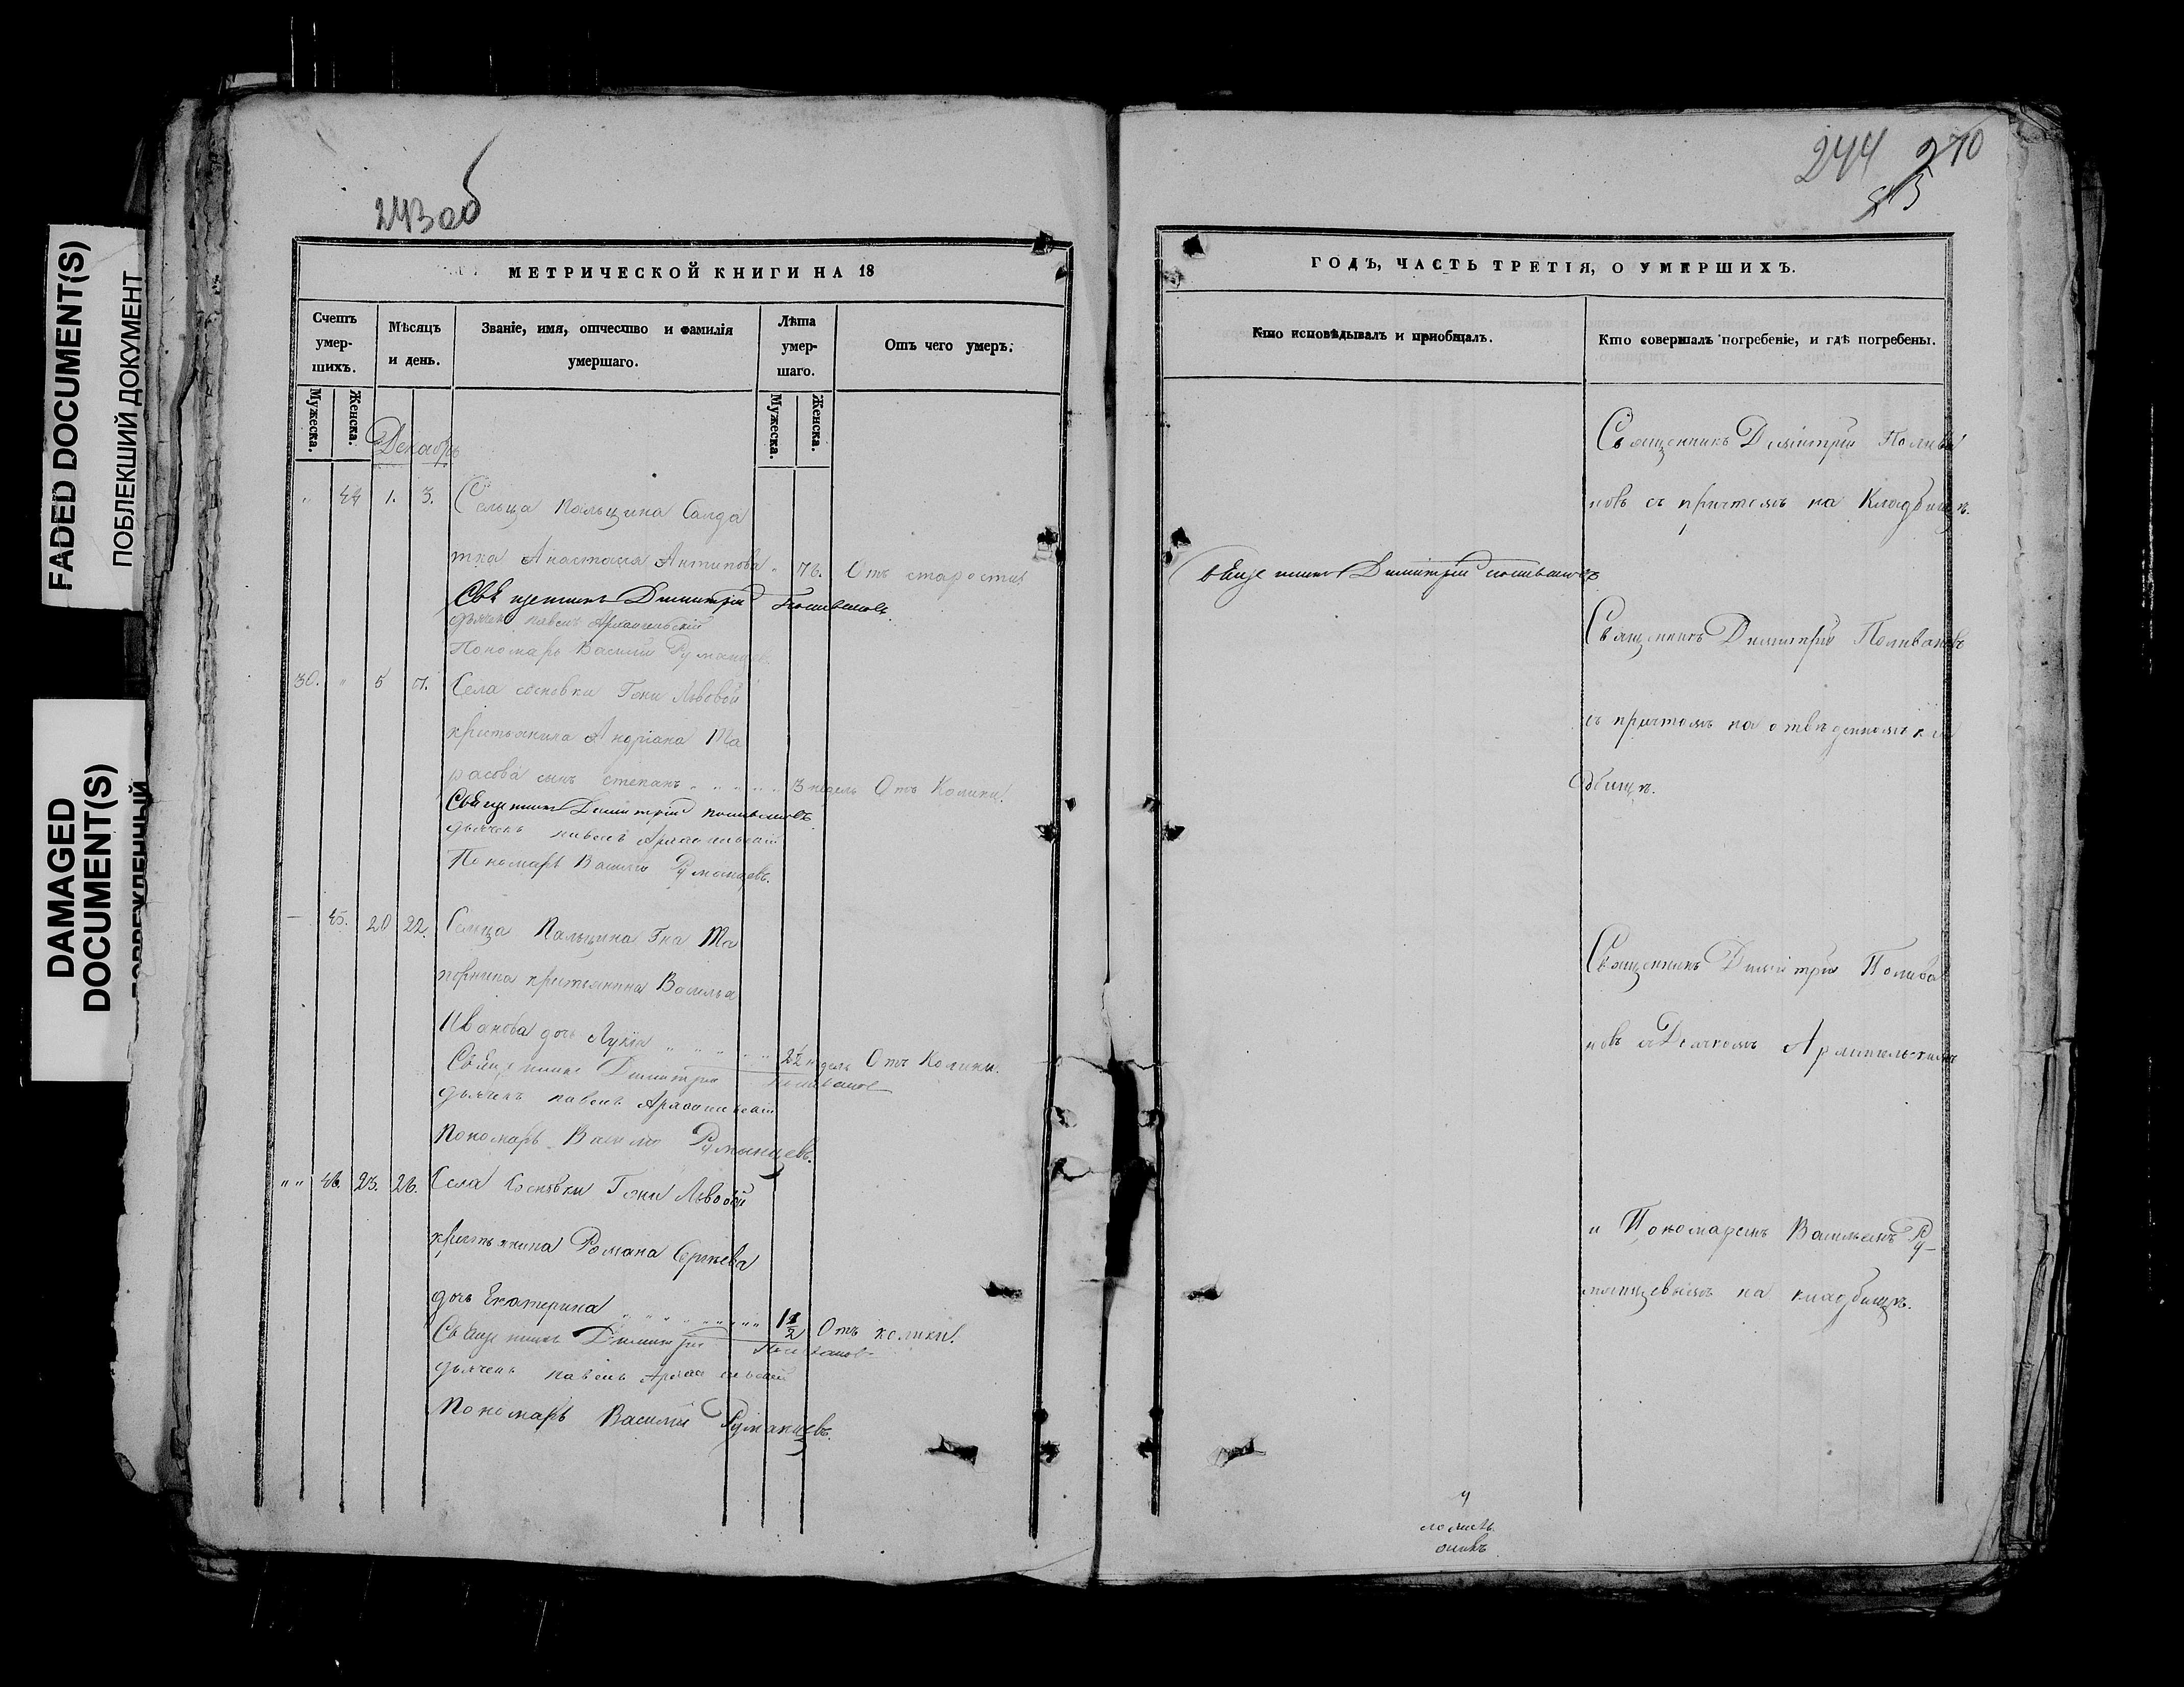 FADED DOCUMENT(S)
ПОБЛЕКШИЙ ДОКУМЕНТ
DAMAGED
DOCUMENT(S)
243 об
МЕТРИЧЕСКОЙ КНИГИ НА 18
Счетъ умершихъ.
Мѣсяцъ и день.
Званіе, имя, отчество и фамилія умершаго.
Лѣта умершаго.
Отъ чего умеръ.
Мужеска.
Женска.
Мужеска.
Женска.
Декабрь
" 44 1. 3. Сельца Пальцина Салда
тка Анастасія Антипова " 76. Отъ старости
Священникъ Димитрій Поливановъ
дьячекъ павелъ Архангельскій
Пономарь Василій Румянцевъ.
30. " 5 7. Села Сосновки Гжи Львовой
крестьянина Андріана Та
расова сынъ степанъ 3 недель Отъ Колики.
Священникъ Димитрій поливановъ
дьячекъ павелъ Архангельскій
Пономарь Василій Румянцевъ.
— 45. 20 22. Сельца Пальцина Гна
крестьянина Василья
Иванова дочь 2½ недель Отъ Колики.
Священникъ Димитрій Поливановъ
дьячекъ павелъ Архангельскій
Пономарь Василій Румянцевъ.
" " 46. 25. 26. Села Сосновки Гжи Львовой
крестьянина Романа Сергѣева
дочь Екатерина 1½ Отъ колики.
Священникъ Димитрій Поливановъ
дьячекъ павелъ Архангельскій
Пономарь Василій Румянцевъ.
244 270
ГОДЪ, ЧАСТЬ ТРЕТІЯ, О УМЕРШИХЪ.
Кто исповѣдывалъ и пріобщалъ.
Кто совершалъ погребеніе, и гдѣ погребены.
Священникъ Димитрій Полива
новъ съ причтомъ на Кладбищѣ.
Священникъ Димитрій поливановъ
Священникъ Димитрій Поливановъ
съ причтомъ на отведенномъ кла
дбищѣ.
Священникъ Димитрій Полива
новъ съ Дьячкомъ Архангельскимъ
и Пономаремъ Васильемъ Ру-
мянцевымъ на кладбищѣ.